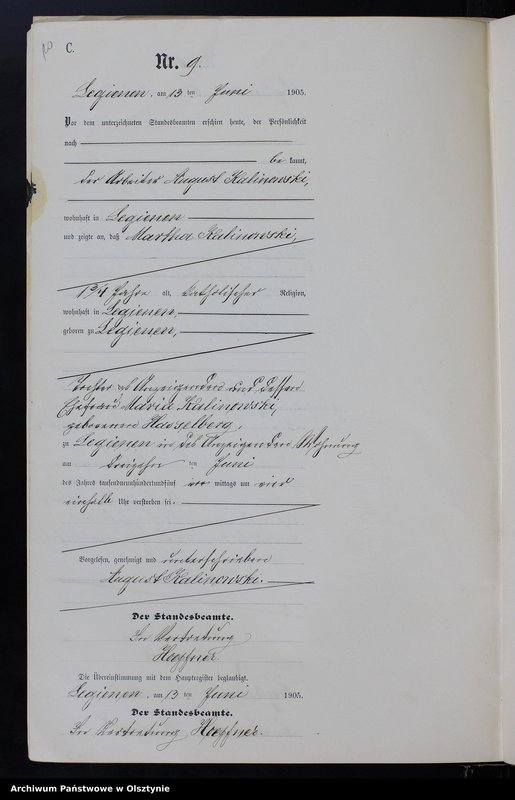 C.
Nr. 9.
Legienen, am 13 ten Juni 1905.
Vor dem unterzeichneten Standesbeamten erschien heute, der Persönlichkeit
nach
be kannt,
der Arbeiter August Kalinowski,
wohnhaft in Legienen
und zeigte an, daß Martha Kalinowski,
1 3/4 Jahre alt, katholischer Religion,
wohnhaft in Legienen,
geboren zu Legienen,
Tochter des Anzeigenden und dessen
Ehefrau Maria Kalinowski,
geborenen Hasselberg,
zu Legienen in des Anzeigenden Wohnung
am dreizehn ten Juni
des Jahres tausendneunhundertundfünf vor mittags um vier
einhalb Uhr verstorben sei.
Vorgelesen, genehmigt und unterschrieben
August Kalinowski.
Der Standesbeamte.
In Vertretung
Hoepfner.
Die Übereinstimmung mit dem Hauptregister beglaubigt.
Legienen, am 13 ten Juni 1905.
Der Standesbeamte.
In Vertretung Hoepfner.
Archiwum Państwowe w Olsztynie